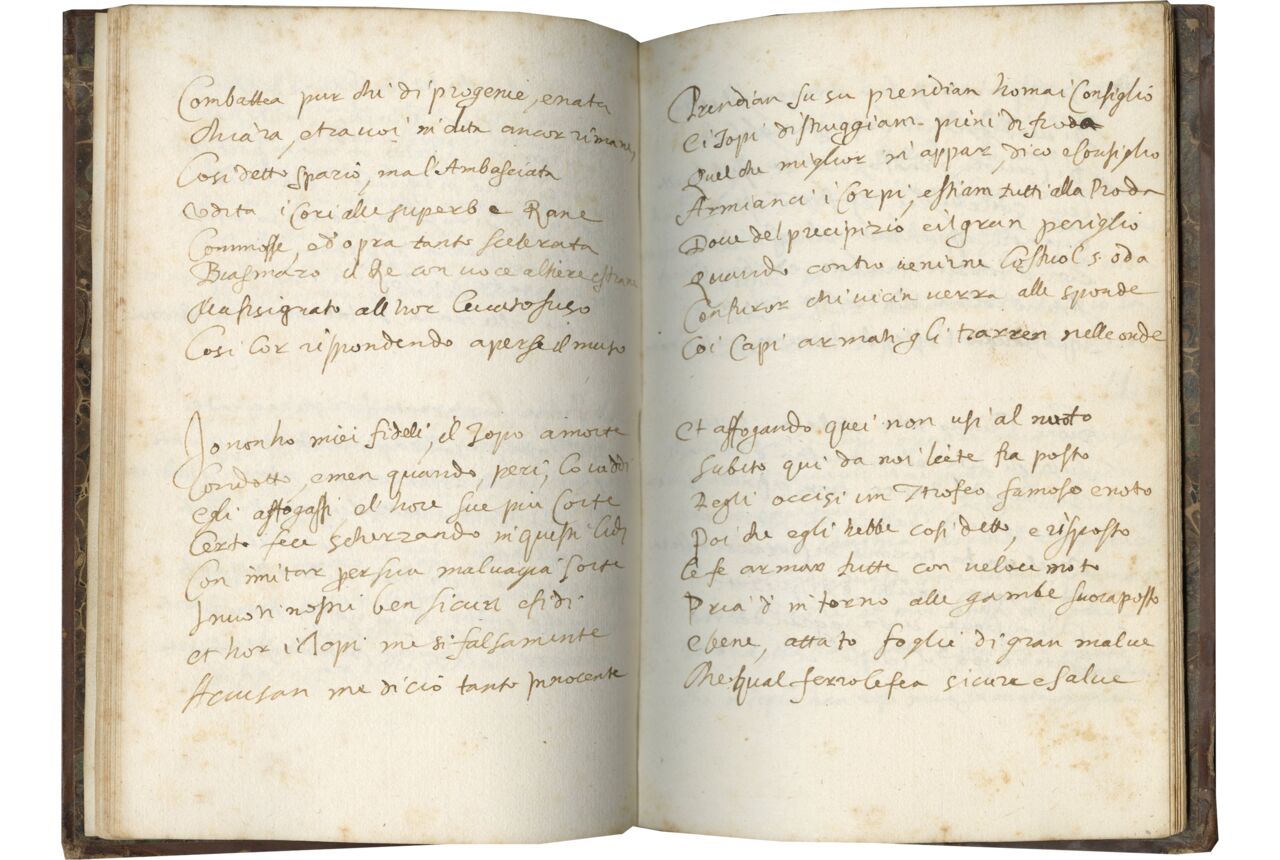 Combattea pur chi di progenie, e nata
Chiara, e tra voi in vita ancor rimane,
Cosi detto sparió, ma l'Ambasciata
Vdita i Cori alle superbe Rane
Commosse, ed'opra tanto scelerata
Biasmaro il Re con voce altiere e strane
Ma fisignato all hor levato suso
Cosi lor rispondendo aperse il muso
Io non ho miei fideli, il Topo a morte
Condotto, e men quando, peri, lo viddi
egli affogassi, e l'hore sue piu corte
Certo fece scherzando in questi lidi
Con imitar per sua malvagia sorte
I nuoti nostri ben sicuri e fidi
et hor i Topi me si falsamente
Accusan me di ció tanto innocente
Prendian su su prendian homai Consiglio
Ei Topi distruggiam pieni di froda
Quel che miglior m'appar, dico e consiglio
Armianci i Corpi, e stiam tutti alla Proda
Dove del precipizio e il gran periglio
Quando contro venirne lo stuol s'oda
Con furor chi vicin verra alle sponde
Coi Capi armati gli trarren nelle onde
Et affogando quei non usi al nuoto
Subito qui da noi liete fia posto
Degli occisi un Trofeo famoso e noto
Poi che egli hebbe cosi detto, e risposto
le fe armar tutte con veloce moto
Pria d'intorno alle gambe fu ra posto
e bene, attato foglie di gran malve
Che qual ferro le fea sicure e salve